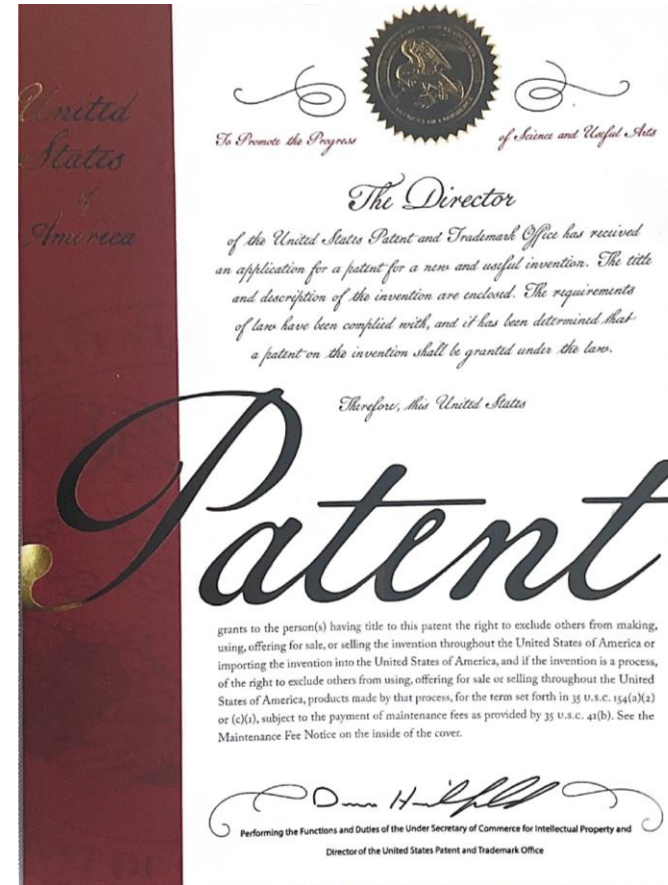 United
States
of
America
To Promote the Progress
of Science and Useful Arts
The Director
of the United States Patent and Trademark Office has received
an application for a patent for a new and useful invention. The title
and description of the invention are enclosed. The requirements
of law have been complied with, and it has been determined that
a patent on the invention shall be granted under the law.
Therefore, this United States
Patent
grants to the person(s) having title to this patent the right to exclude others from making,
using, offering for sale, or selling the invention throughout the United States of America or
importing the invention into the United States of America, and if the invention is a process,
of the right to exclude others from using, offering for sale or selling throughout the United
States of America, products made by that process, for the term set forth in 35 U.S.C. 154(a)(2)
or (c)(1), subject to the payment of maintenance fees as provided by 35 U.S.C. 41(b). See the
Maintenance Fee Notice on the inside of the cover.
Performing the Functions and Duties of the Under Secretary of Commerce for Intellectual Property and
Director of the United States Patent and Trademark Office